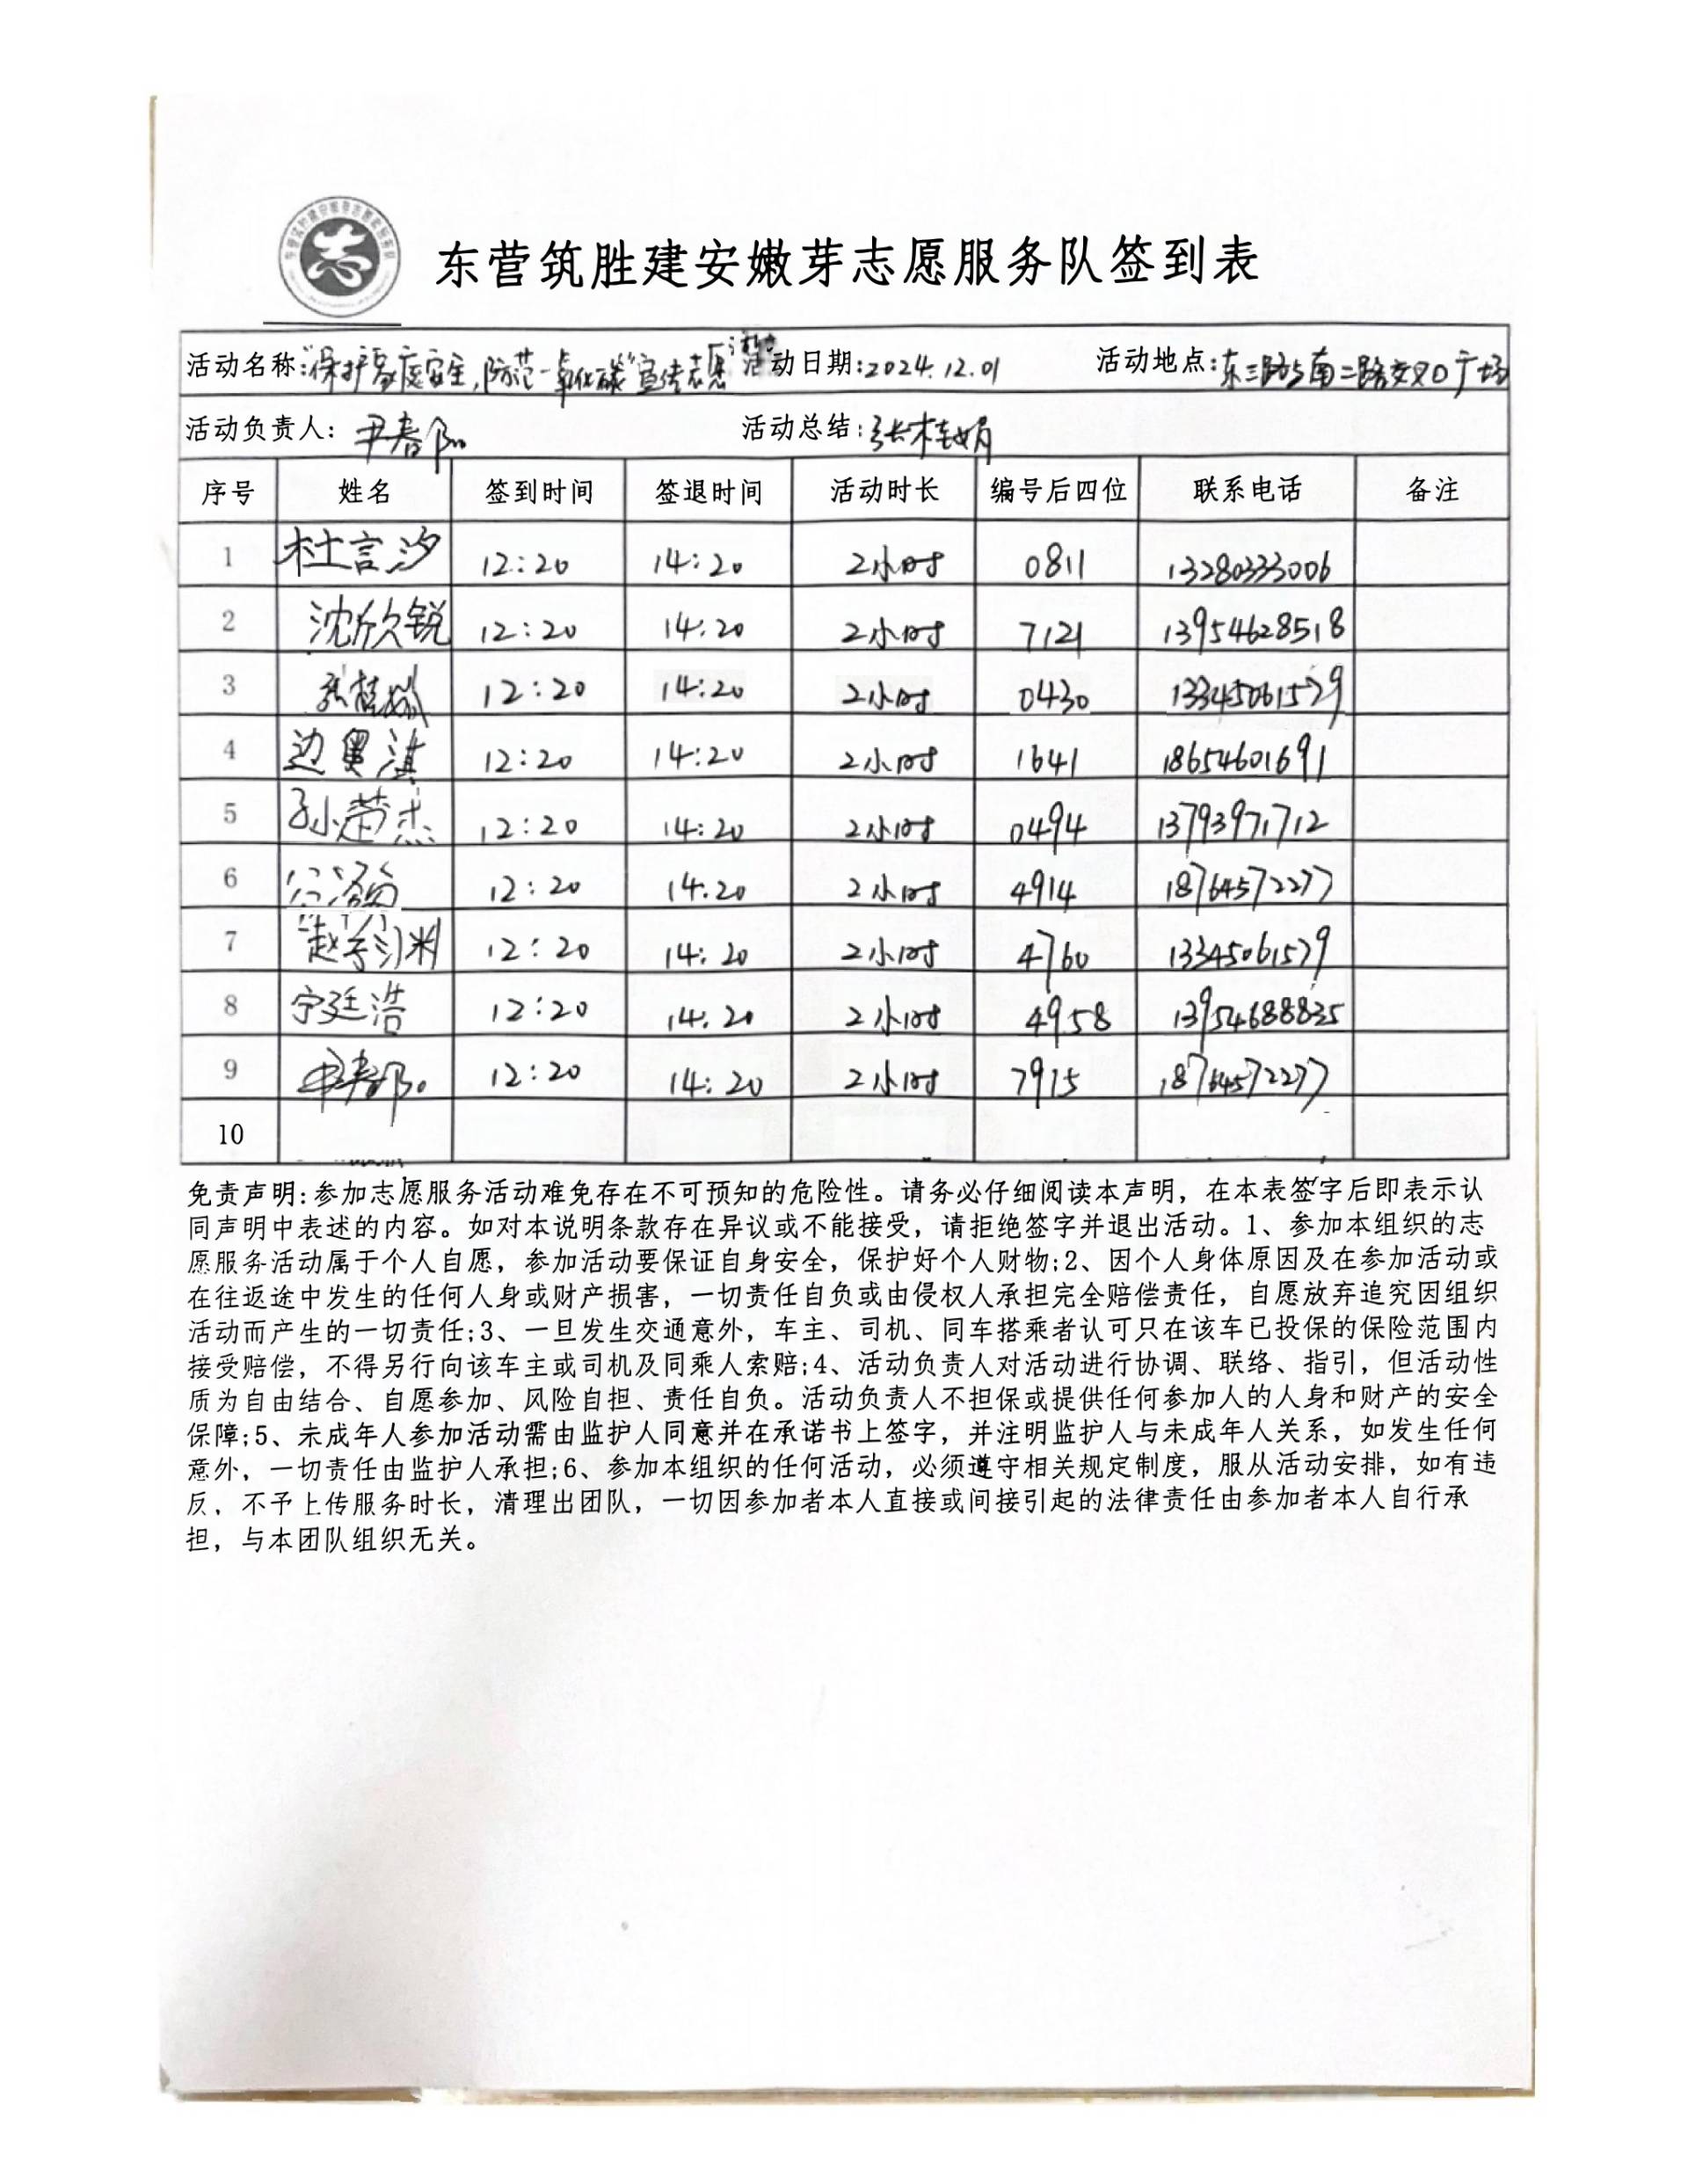 志
东营筑胜建安嫩芽志愿服务队签到表
活动名称:"保护家庭安全,防范一氧化碳"宣传志愿活动 活动日期:2024.12.01 活动地点:东三路与南二路交叉口广场
活动负责人: 尹春阳 活动总结:张桂娟
序号 姓名 签到时间 签退时间 活动时长 编号后四位 联系电话 备注
1 杜言汐 12:20 14:20 2小时 0811 13280333006
2 沈欣锐 12:20 14:20 2小时 7121 13954628518
3 张桂娟 12:20 14:20 2小时 0430 13345061579
4 边 淇 12:20 14:20 2小时 1641 18654601691
5 孙 杰 12:20 14:20 2小时 0494 13793971712
6 12:20 14:20 2小时 4914 18764572277
7 赵 12:20 14:20 2小时 4760 13345061579
8 宁廷浩 12:20 14:20 2小时 4958 13954688835
9 尹春阳 12:20 14:20 2小时 7915 18764572277
10
免责声明:参加志愿服务活动难免存在不可预知的危险性。请务必仔细阅读本声明，在本表签字后即表示认
同声明中表述的内容。如对本说明条款存在异议或不能接受，请拒绝签字并退出活动。1、参加本组织的志
愿服务活动属于个人自愿，参加活动要保证自身安全，保护好个人财物;2、因个人身体原因及在参加活动或
在往返途中发生的任何人身或财产损害，一切责任自负或由侵权人承担完全赔偿责任，自愿放弃追究因组织
活动而产生的一切责任;3、一旦发生交通意外，车主、司机、同车搭乘者认可只在该车已投保的保险范围内
接受赔偿，不得另行向该车主或司机及同乘人索赔;4、活动负责人对活动进行协调、联络、指引，但活动性
质为自由结合、自愿参加、风险自担、责任自负。活动负责人不担保或提供任何参加人的人身和财产的安全
保障;5、未成年人参加活动需由监护人同意并在承诺书上签字，并注明监护人与未成年人关系，如发生任何
意外，一切责任由监护人承担;6、参加本组织的任何活动，必须遵守相关规定制度，服从活动安排，如有违
反，不予上传服务时长，清理出团队，一切因参加者本人直接或间接引起的法律责任由参加者本人自行承
担，与本团队组织无关。